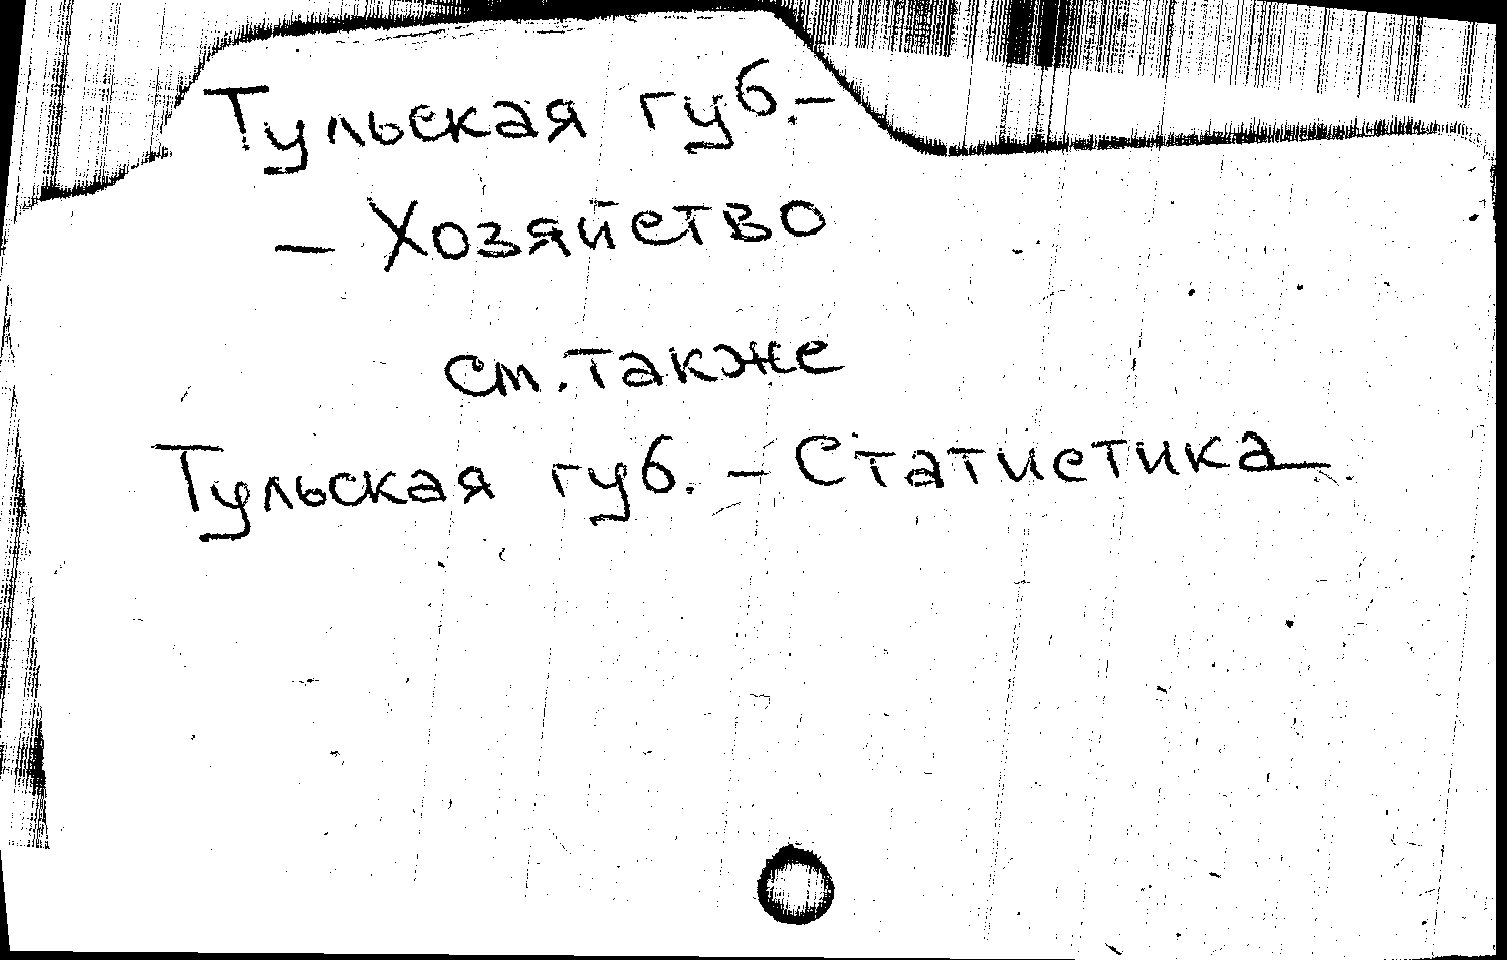 Тульская губ.-
- Хозяйство
см. также
Тульская губ. - Статистика